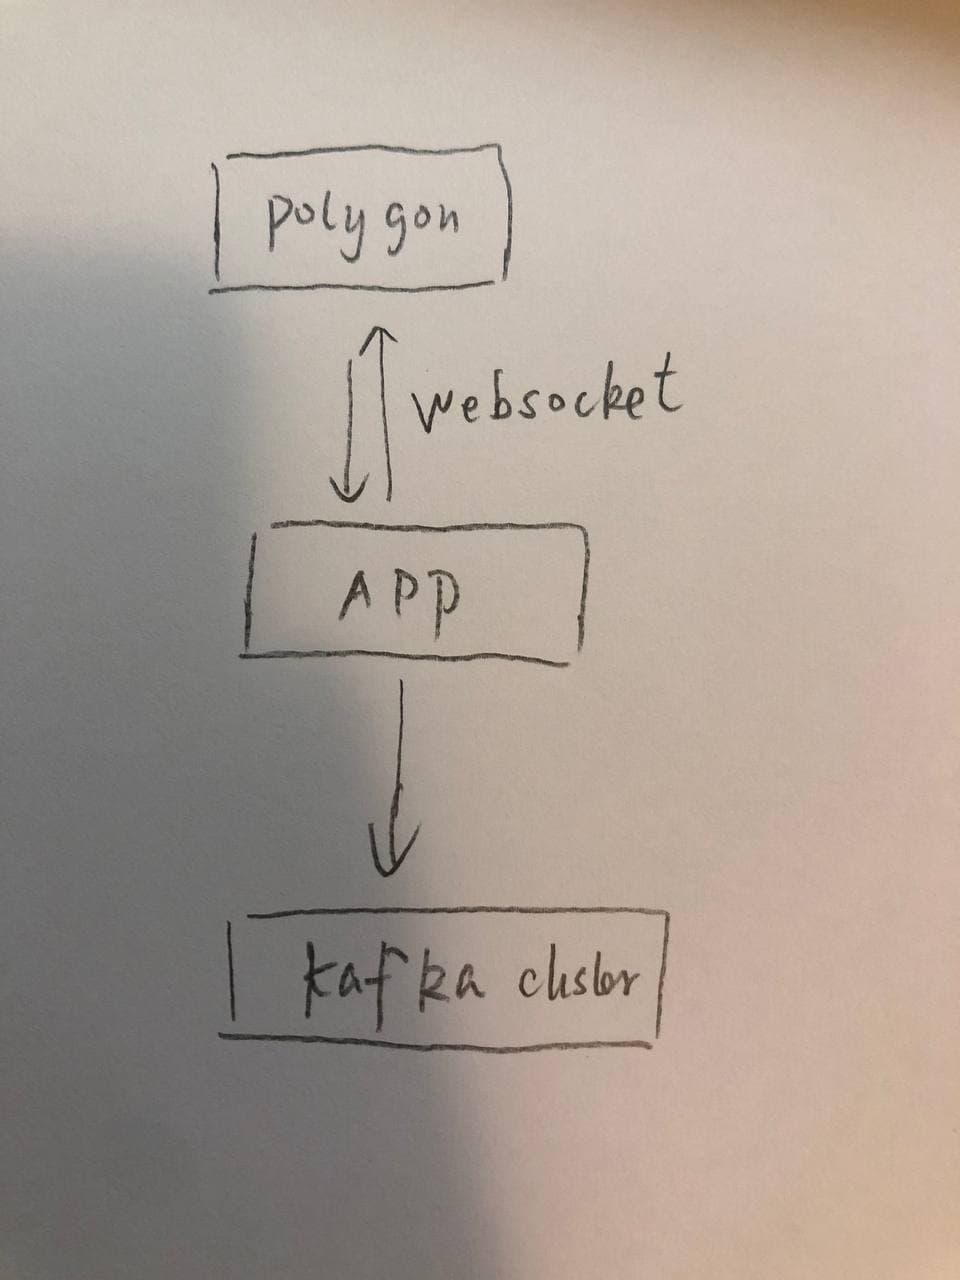 polygon
websocket
APP
kafka cluster